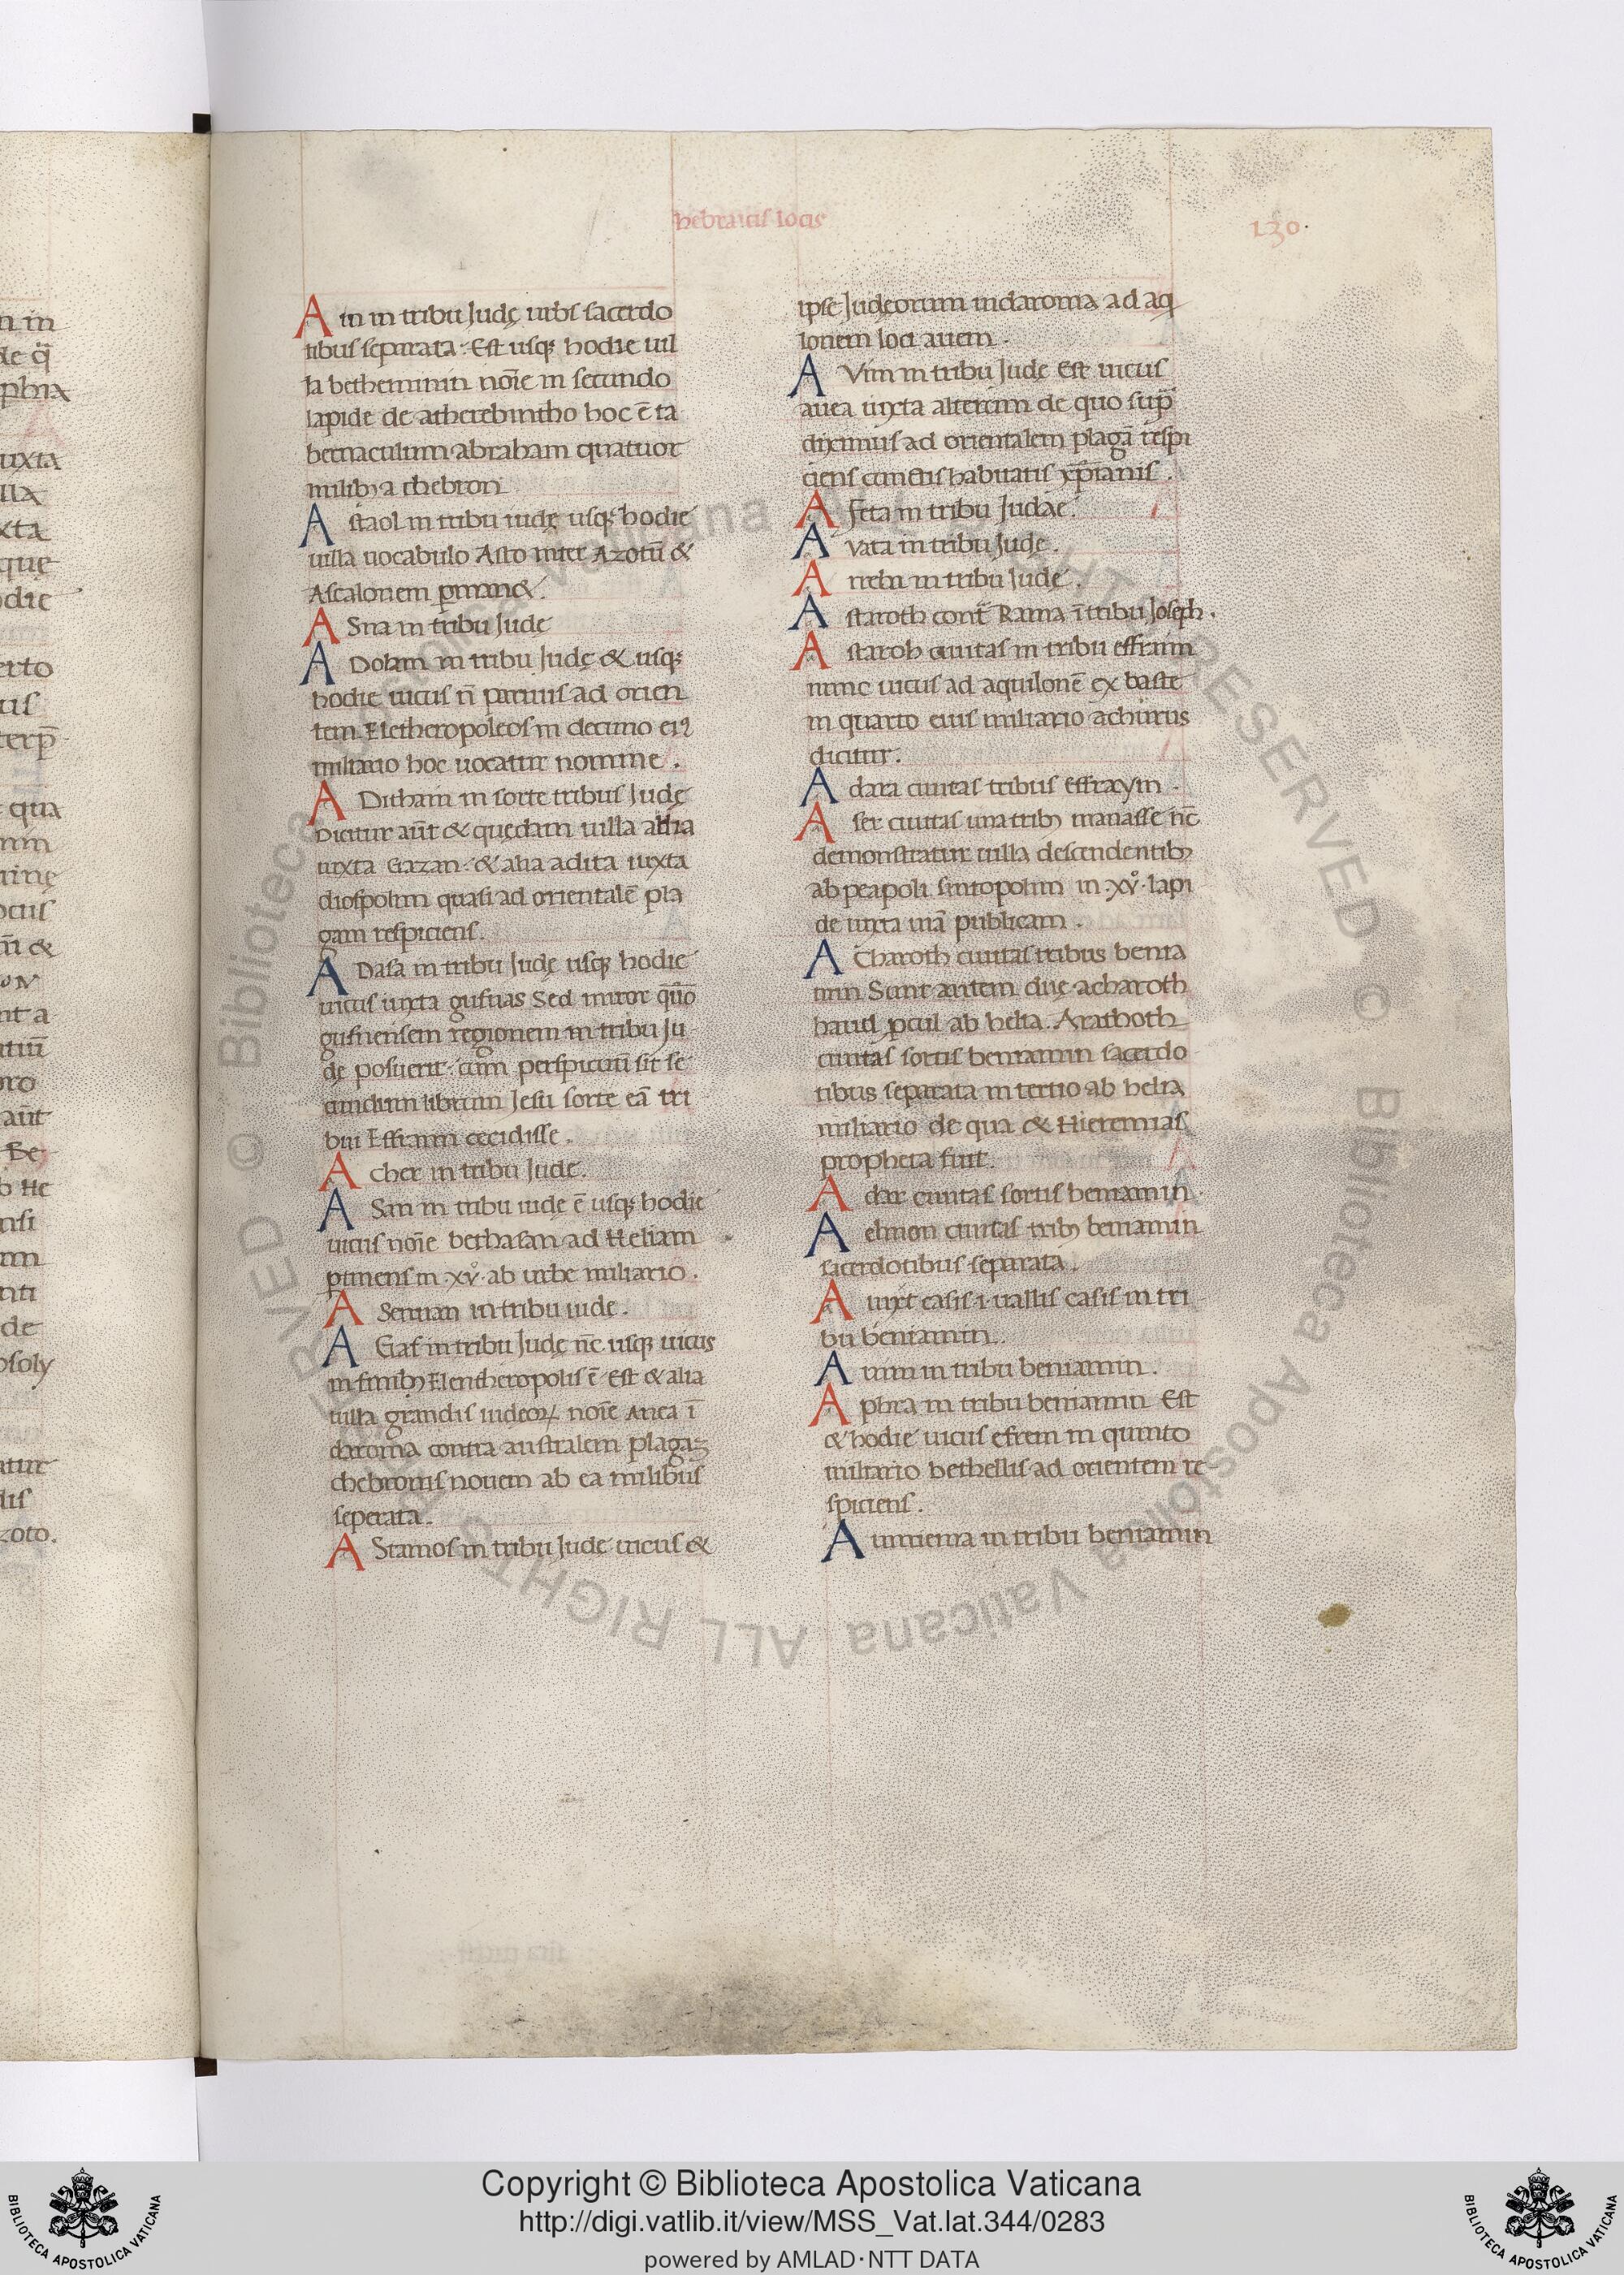 hebraicis locis
130.
Ain in tribu Judę urbs sacerdo
tibus separata. Est usq; hodie uil
la bethennim nōie in secundo
lapide de atherebintho hoc ē ta
bernaculum abraham quatuor
milibꝫ a chebron
Astaol in tribu iudę usq; hodie
uilla uocabulo Asto inter Azotū &
Ascalonem ꝑman&.
ASna in tribu Jude
ADolam in tribu Judę & usq;
hodie uicus n̄ paruus ad orien
tem Eletheropoleos in decimo eiꝰ
miliario hoc uocatur nomine.
ADitham in sorte tribus Judę
Dicitur aūt & quędam uilla allia
iuxta Gazan. & alia adita iuxta
diospolim quasi ad orientalē pla
gam respiciens.
ADasa in tribu Judę usq; hodie
uicus iuxta gufnas Sed miror quō
gufnensem regionem in tribu Ju
dę posuerit. cum perspicuū sit se
cundum librum Jesu sorte eā tri
bui Effraim cecidisse.
Acher in tribu Jude.
ASan in tribu iudę ē usq; hodie
uicus nōie bethasan ad Heliam
ꝑtinens in .xv. ab urbe miliario.
ASennan in tribu iude.
AGaf in tribu Judę nc̄ usq; uicus
in finibꝫ Eleutheropolis ē Est & alia
uilla grandis iudeoꝝ nōie Anea ī
daroma contra australem plagaꝫ
chebronis nouem ab ea milibus
seperata.
AStamos in tribu Jude uicus &
ipse Judęorum indaroma ad aq
lonem loci auem.
AVim in tribu Judę Est uicus
auea iuxta alterum de quo sup̄
diximus ad orientalem plagā respi
ciens cunctis habitatis xp̄ianis.
Afeta in tribu Judae.
Avata in tribu Judę.
Arreba in tribu Judę.
Astaroth cont̄ Rama ī tribu Joseph.
Astaroh ciuitas in tribu effraim
nunc uicus ad aquilonē ex baste
in quarto eius miliario achirus
dicitur.
Adara ciuitas tribus Effraym.
Aser ciuitas una tribꝫ manasse nc̄
demonstratur uilla descendentibꝫ
ab peapoli sintopolim in .xv. lapi
de iuxta uiā publicam.
ACharoth ciuitas tribus benia
min Sunt autem duę acharoth
haud ꝓcul ab helia. Arathoth
ciuitas sortis beniamin sacerdo
tibus separata in tertio ab helia
miliario de qua & Hieremias
propheta fuit.
Adar ciuitas sortis beniamin.
Aelmon ciuitas tribꝫ beniamin
sacerdotibus separata.
Amxt casis .i. uallis casis in tri
bu beniamin.
Auim in tribu beniamin.
Aphra in tribu beniamin Est
& hodie uicus efrem in quinto
miliario bethellis ad orientem re
spiciens.
Amniema in tribu beniamin
Copyright © Biblioteca Apostolica Vaticana
http://digi.vatlib.it/view/MSS_Vat.lat.344/0283
powered by AMLAD·NTT DATA
BIBLIOTECA APOSTOLICA VATICANA
BIBLIOTECA APOSTOLICA VATICANA